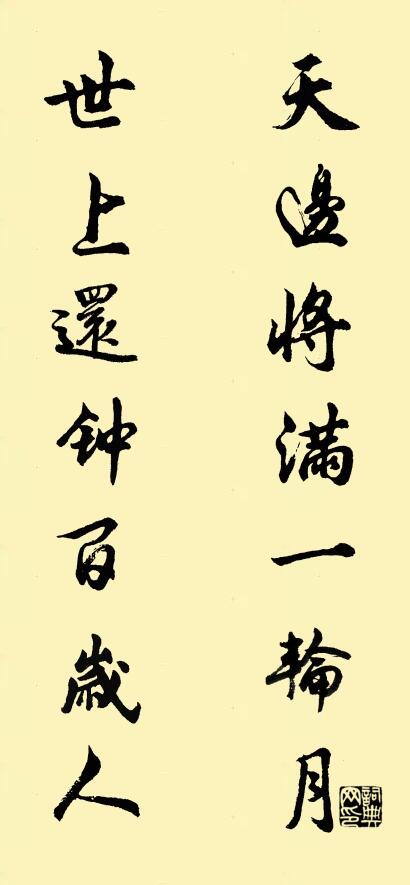 天邊將滿一輪月
世上還钟百歲人
詞典网印